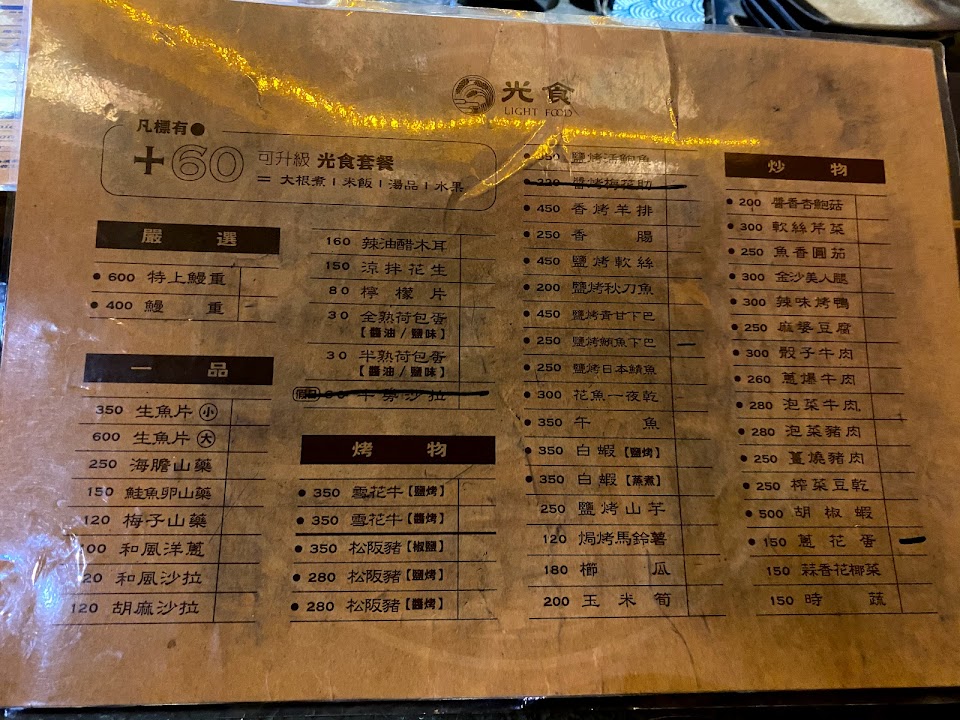 光食
LIGHT FOOD
凡標有●
+60 可升級 光食套餐
= 大根煮 | 米飯 | 湯品 | 水果
嚴 選
● 600 特上鰻重
● 400 鰻 重
一 品
350 生魚片 小
600 生魚片 大
250 海膽山藥
150 鮭魚卵山藥
120 梅子山藥
00 和風洋蔥
20 和風沙拉
120 胡麻沙拉
160 辣油醋木耳
150 涼拌花生
80 檸檬片
30 全熟荷包蛋
【醬油/鹽味】
30 半熟荷包蛋
【醬油/鹽味】
牛蒡沙拉
烤 物
● 350 雪花牛【鹽烤】
● 350 雪花牛【醬烤】
● 350 松阪豬【椒鹽】
● 280 松阪豬【鹽烤】
● 280 松阪豬【醬烤】
● 350 鹽烤活鮑魚
● 450 香烤羊排
● 250 香 腸
● 450 鹽烤軟絲
● 200 鹽烤秋刀魚
● 450 鹽烤青甘下巴
● 250 鹽烤鮪魚下巴
● 250 鹽烤日本鯖魚
● 300 花魚一夜乾
● 350 午 魚
● 350 白蝦【鹽烤】
● 350 白蝦【蒸煮】
250 鹽烤山芋
120 焗烤馬鈴薯
180 櫛 瓜
200 玉米筍
炒 物
● 200 醬香杏鮑菇
● 300 軟絲芹菜
● 250 魚香圓茄
● 300 金沙美人腿
● 300 辣味烤鴨
● 250 麻婆豆腐
● 300 骰子牛肉
● 260 蔥爆牛肉
● 280 泡菜牛肉
● 280 泡菜豬肉
● 250 薑燒豬肉
● 250 榨菜豆乾
● 500 胡椒蝦
● 150 蔥花蛋
150 蒜香花椰菜
150 時 蔬